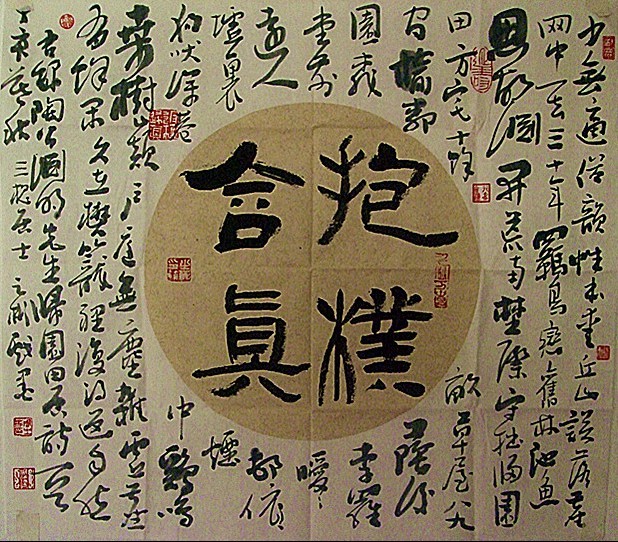 少無適俗韻性本愛丘山誤落塵
网中一去三十年羈鳥戀舊林池魚
思故淵開荒南野際守拙歸園
田方宅十餘畝草屋八九
間榆柳蔭後
簷桃李羅
堂前曖曖
遠人村依依
墟里煙
狗吠深巷中雞鳴
桑樹巔戶庭無塵雜虛室
有餘閒久在樊籠裡復得返自然
右録陶公淵明先生歸園田居詩一首
丁亥秋三居士戲墨
抱樸
含眞